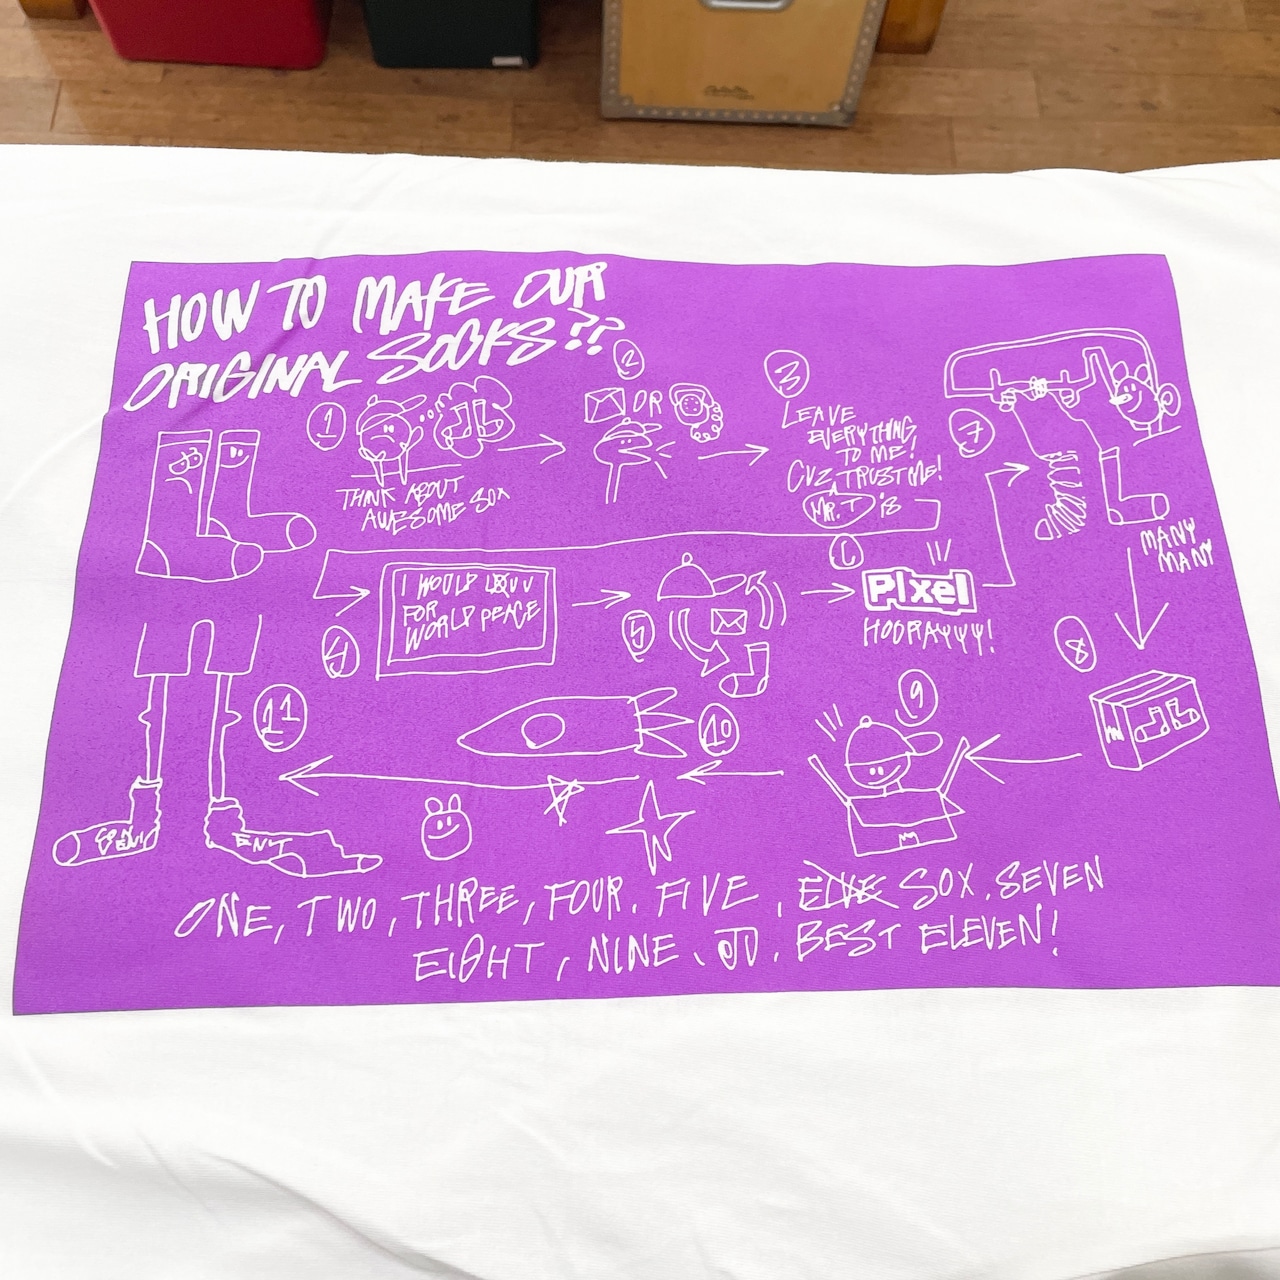 HOW TO MAKE OUR
ORIGINAL SOCKS??
1
THINK ABOUT
AWESOME SOX
2
OR
3
LEAVE
EVERYTHING
TO ME!
CUZ, TRUST ME!
MR. T IS
4
I WOULD
FOR
WORLD PEACE
5
PIxel
HOORAYYY!
7
MANY
MANY
8
9
10
11
ONE, TWO, THREE, FOUR, FIVE, SOX, SEVEN
EIGHT, NINE, BEST ELEVEN!